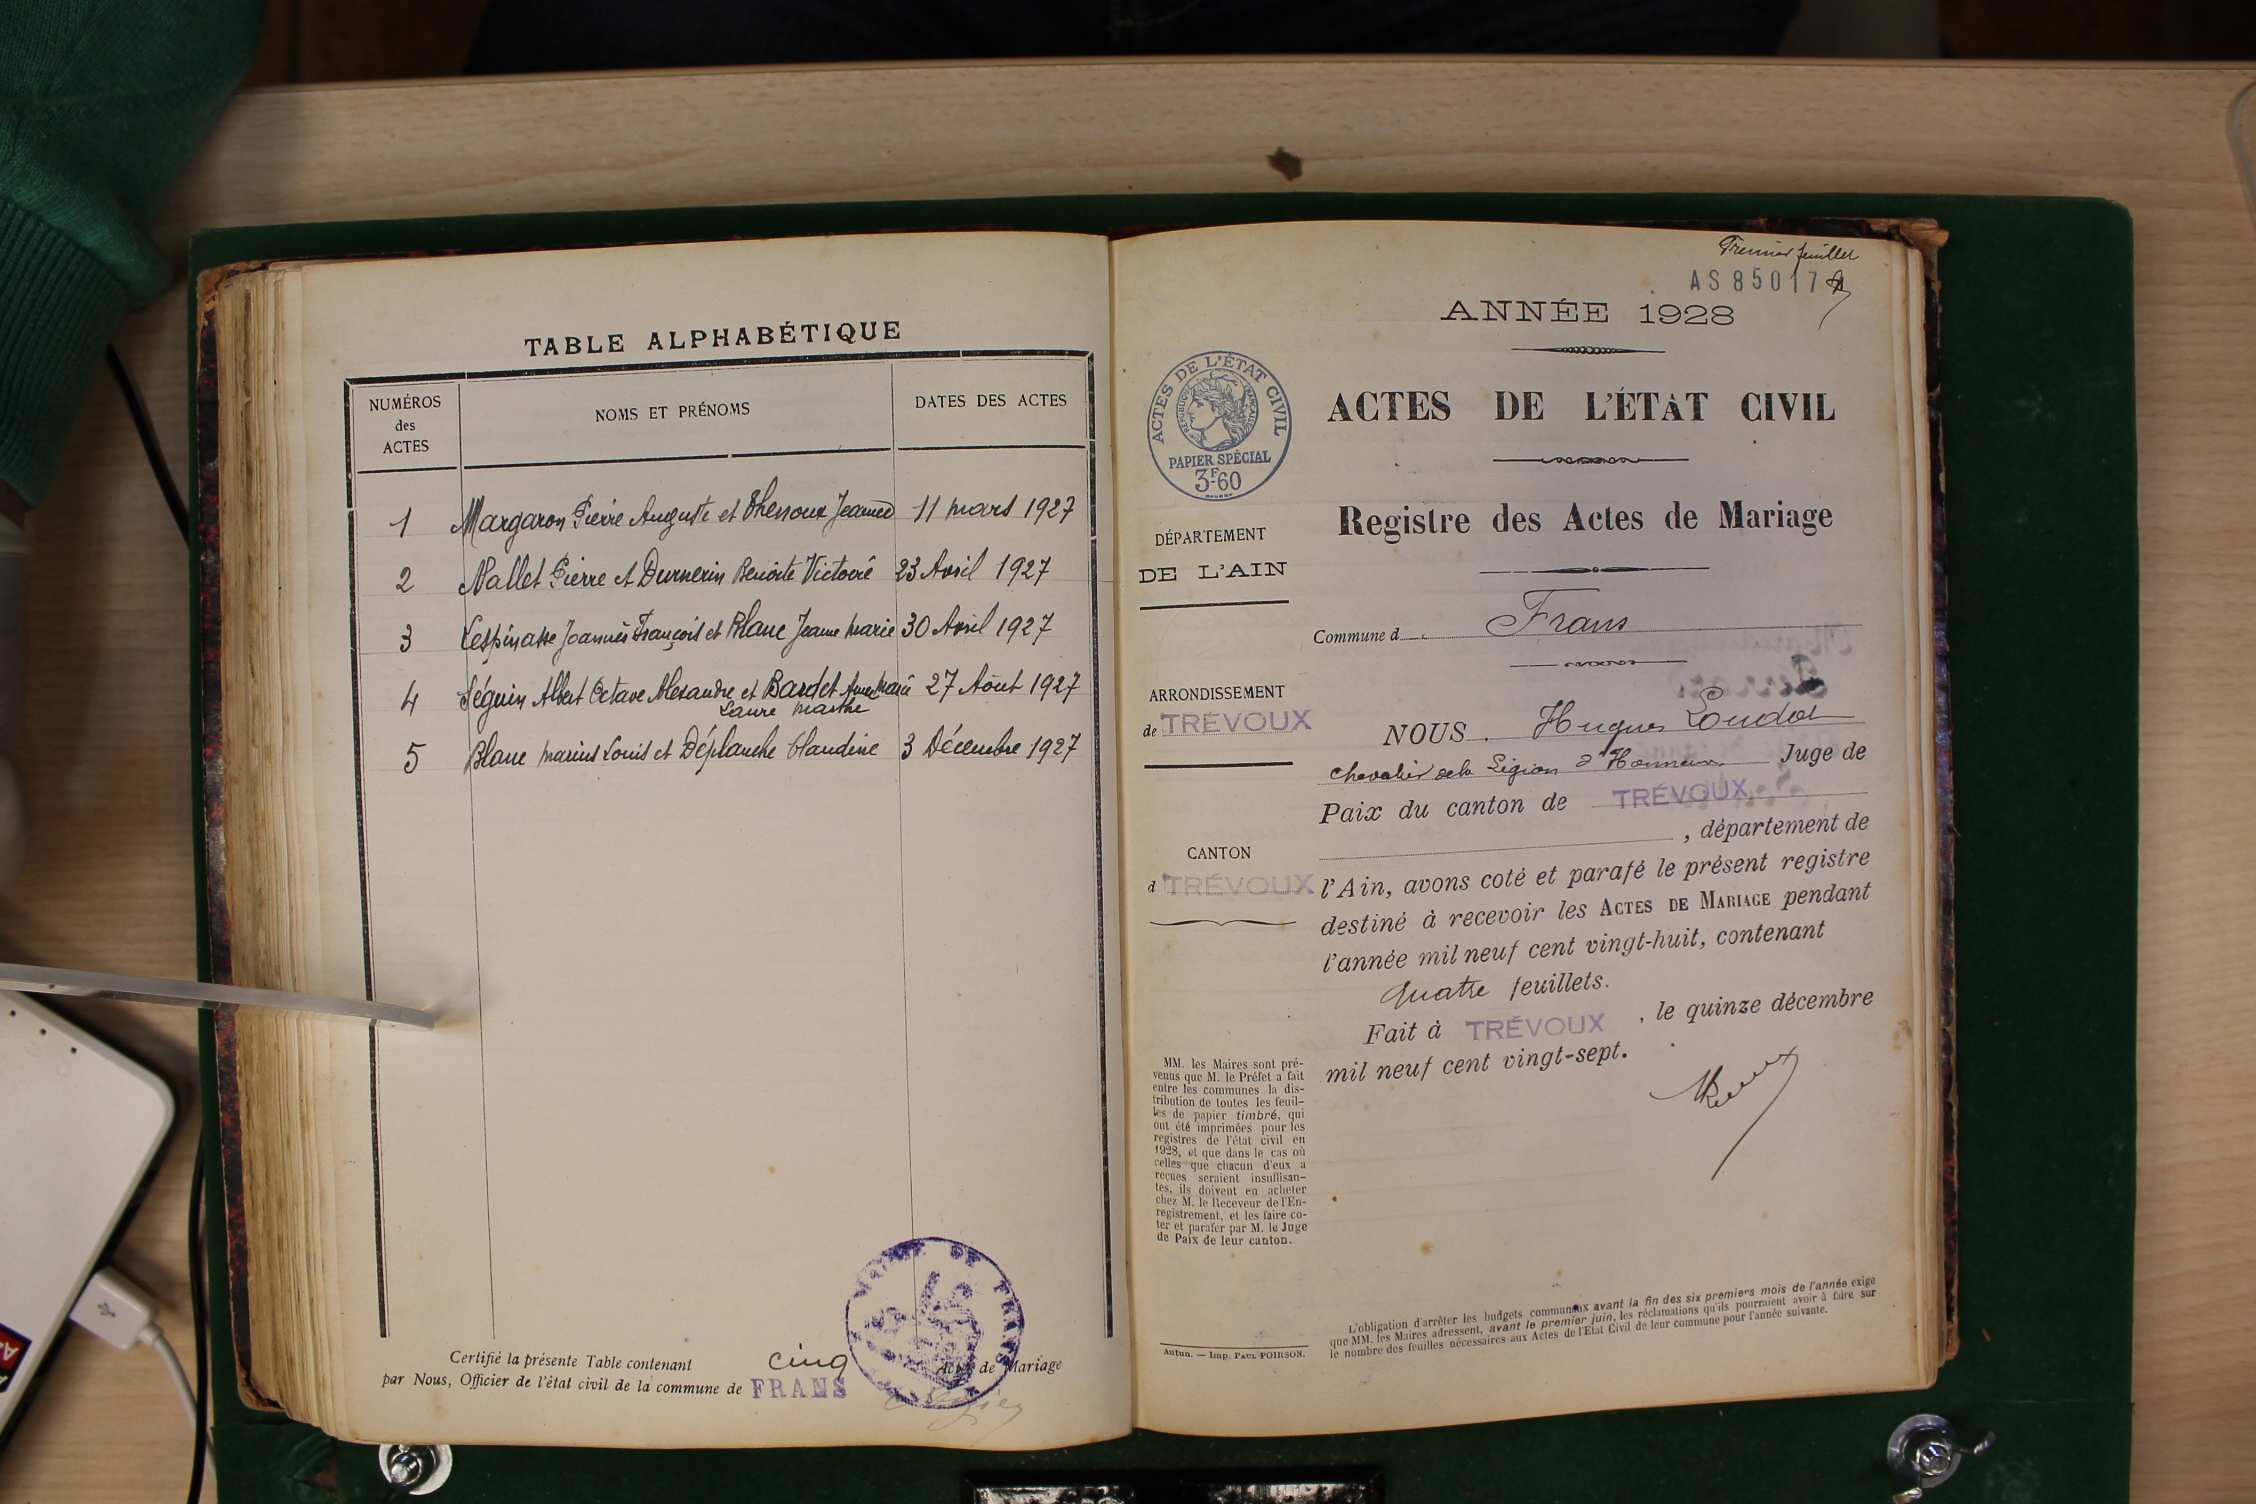 TABLE ALPHABÉTIQUE
NUMÉROS
des
ACTES
NOMS ET PRÉNOMS
DATES DES ACTES
1 Margaron Pierre Auguste et 11 mars 1927
2 Nallet Pierre et Durnerin Benoite Victoire 23 Avril 1927
3 Lespinasse Joannès François et Blanc Jeanne Marie 30 Avril 1927
4 Séguin Albert Octave Alexandre et Bardet Anne Marie 27 Août 1927
Laure Marthe
5 Blanc Marius Louis et Déplanche Claudine 3 Décembre 1927
Certifié la présente Table contenant cinq Actes de Mariage
par Nous, Officier de l'état civil de la commune de FRANS
MAIRIE DE FRANS
Premier feuillet
AS 85017
ANNÉE 1928
ACTES DE L'ÉTAT CIVIL
RÉPUBLIQUE FRANÇAISE
PAPIER SPÉCIAL
3F.60
ACTES DE L'ÉTAT CIVIL
Registre des Actes de Mariage
DÉPARTEMENT
DE L'AIN
Commune d Frans
ARRONDISSEMENT
de TRÉVOUX
CANTON
d TRÉVOUX
NOUS Hugues
Chevalier de la Légion d'Honneur Juge de
Paix du canton de TRÉVOUX
, département de
l'Ain, avons coté et parafé le présent registre
destiné à recevoir les ACTES DE MARIAGE pendant
l'année mil neuf cent vingt-huit, contenant
quatre feuillets.
Fait à TRÉVOUX , le quinze décembre
mil neuf cent vingt-sept.
MM. les Maires sont pré-
venus que M. le Préfet a fait
entre les communes la dis-
tribution de toutes les feuil-
les de papier timbré, qui
ont été imprimées pour les
registres de l'état civil en
1928, et que dans le cas où
celles que chacun d'eux a
reçues seraient insuffisan-
tes, ils doivent en acheter
chez M. le Receveur de l'En-
registrement, et les faire co-
ter et parafer par M. le Juge
de Paix de leur canton.
Autun. — Imp. PAUL POIRSON.
L'obligation d'arrêter les budgets communaux avant la fin des six premiers mois de l'année exige
que MM. les Maires adressent, avant le premier juin, les réclamations qu'ils pourraient avoir à faire sur
le nombre des feuilles nécessaires aux Actes de l'Etat Civil de leur commune pour l'année suivante.